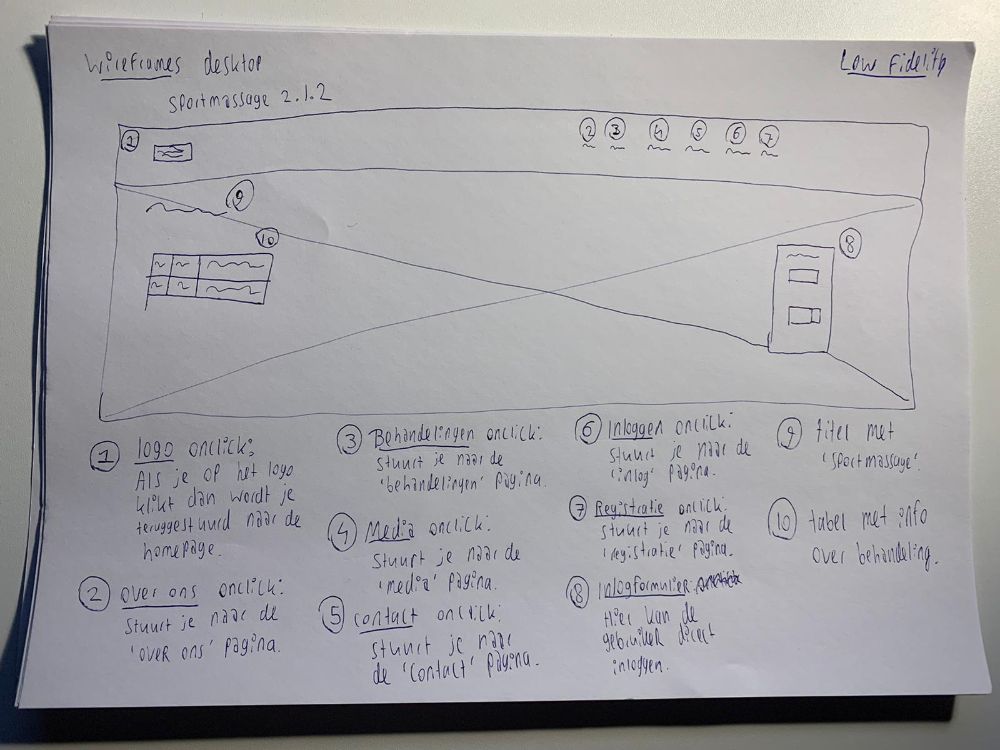 Wireframes desktop
Low Fidelity
Sportmassage 2.1.2
1
2 3 4 5 6 7
9
10
8
1 logo onclick:
Als je op het logo
klikt dan wordt je
teruggestuurd naar de
homepage.
2 over ons onclick:
Stuurt je naar de
'over ons' pagina.
3 Behandelingen onclick:
Stuurt je naar de
'behandelingen' pagina.
4 Media onclick:
Stuurt je naar de
'media' pagina.
5 contact onclick:
Stuurt je naar
de 'contact' pagina.
6 Inloggen onclick:
Stuurt je naar de
'inlog' pagina.
7 Registratie onclick:
Stuurt je naar de
'registratie' pagina.
8 Inlogformulier:
Hier kan de
gebruiker direct
inloggen.
9 titel met
'Sportmassage'.
10 tabel met info
over behandeling.